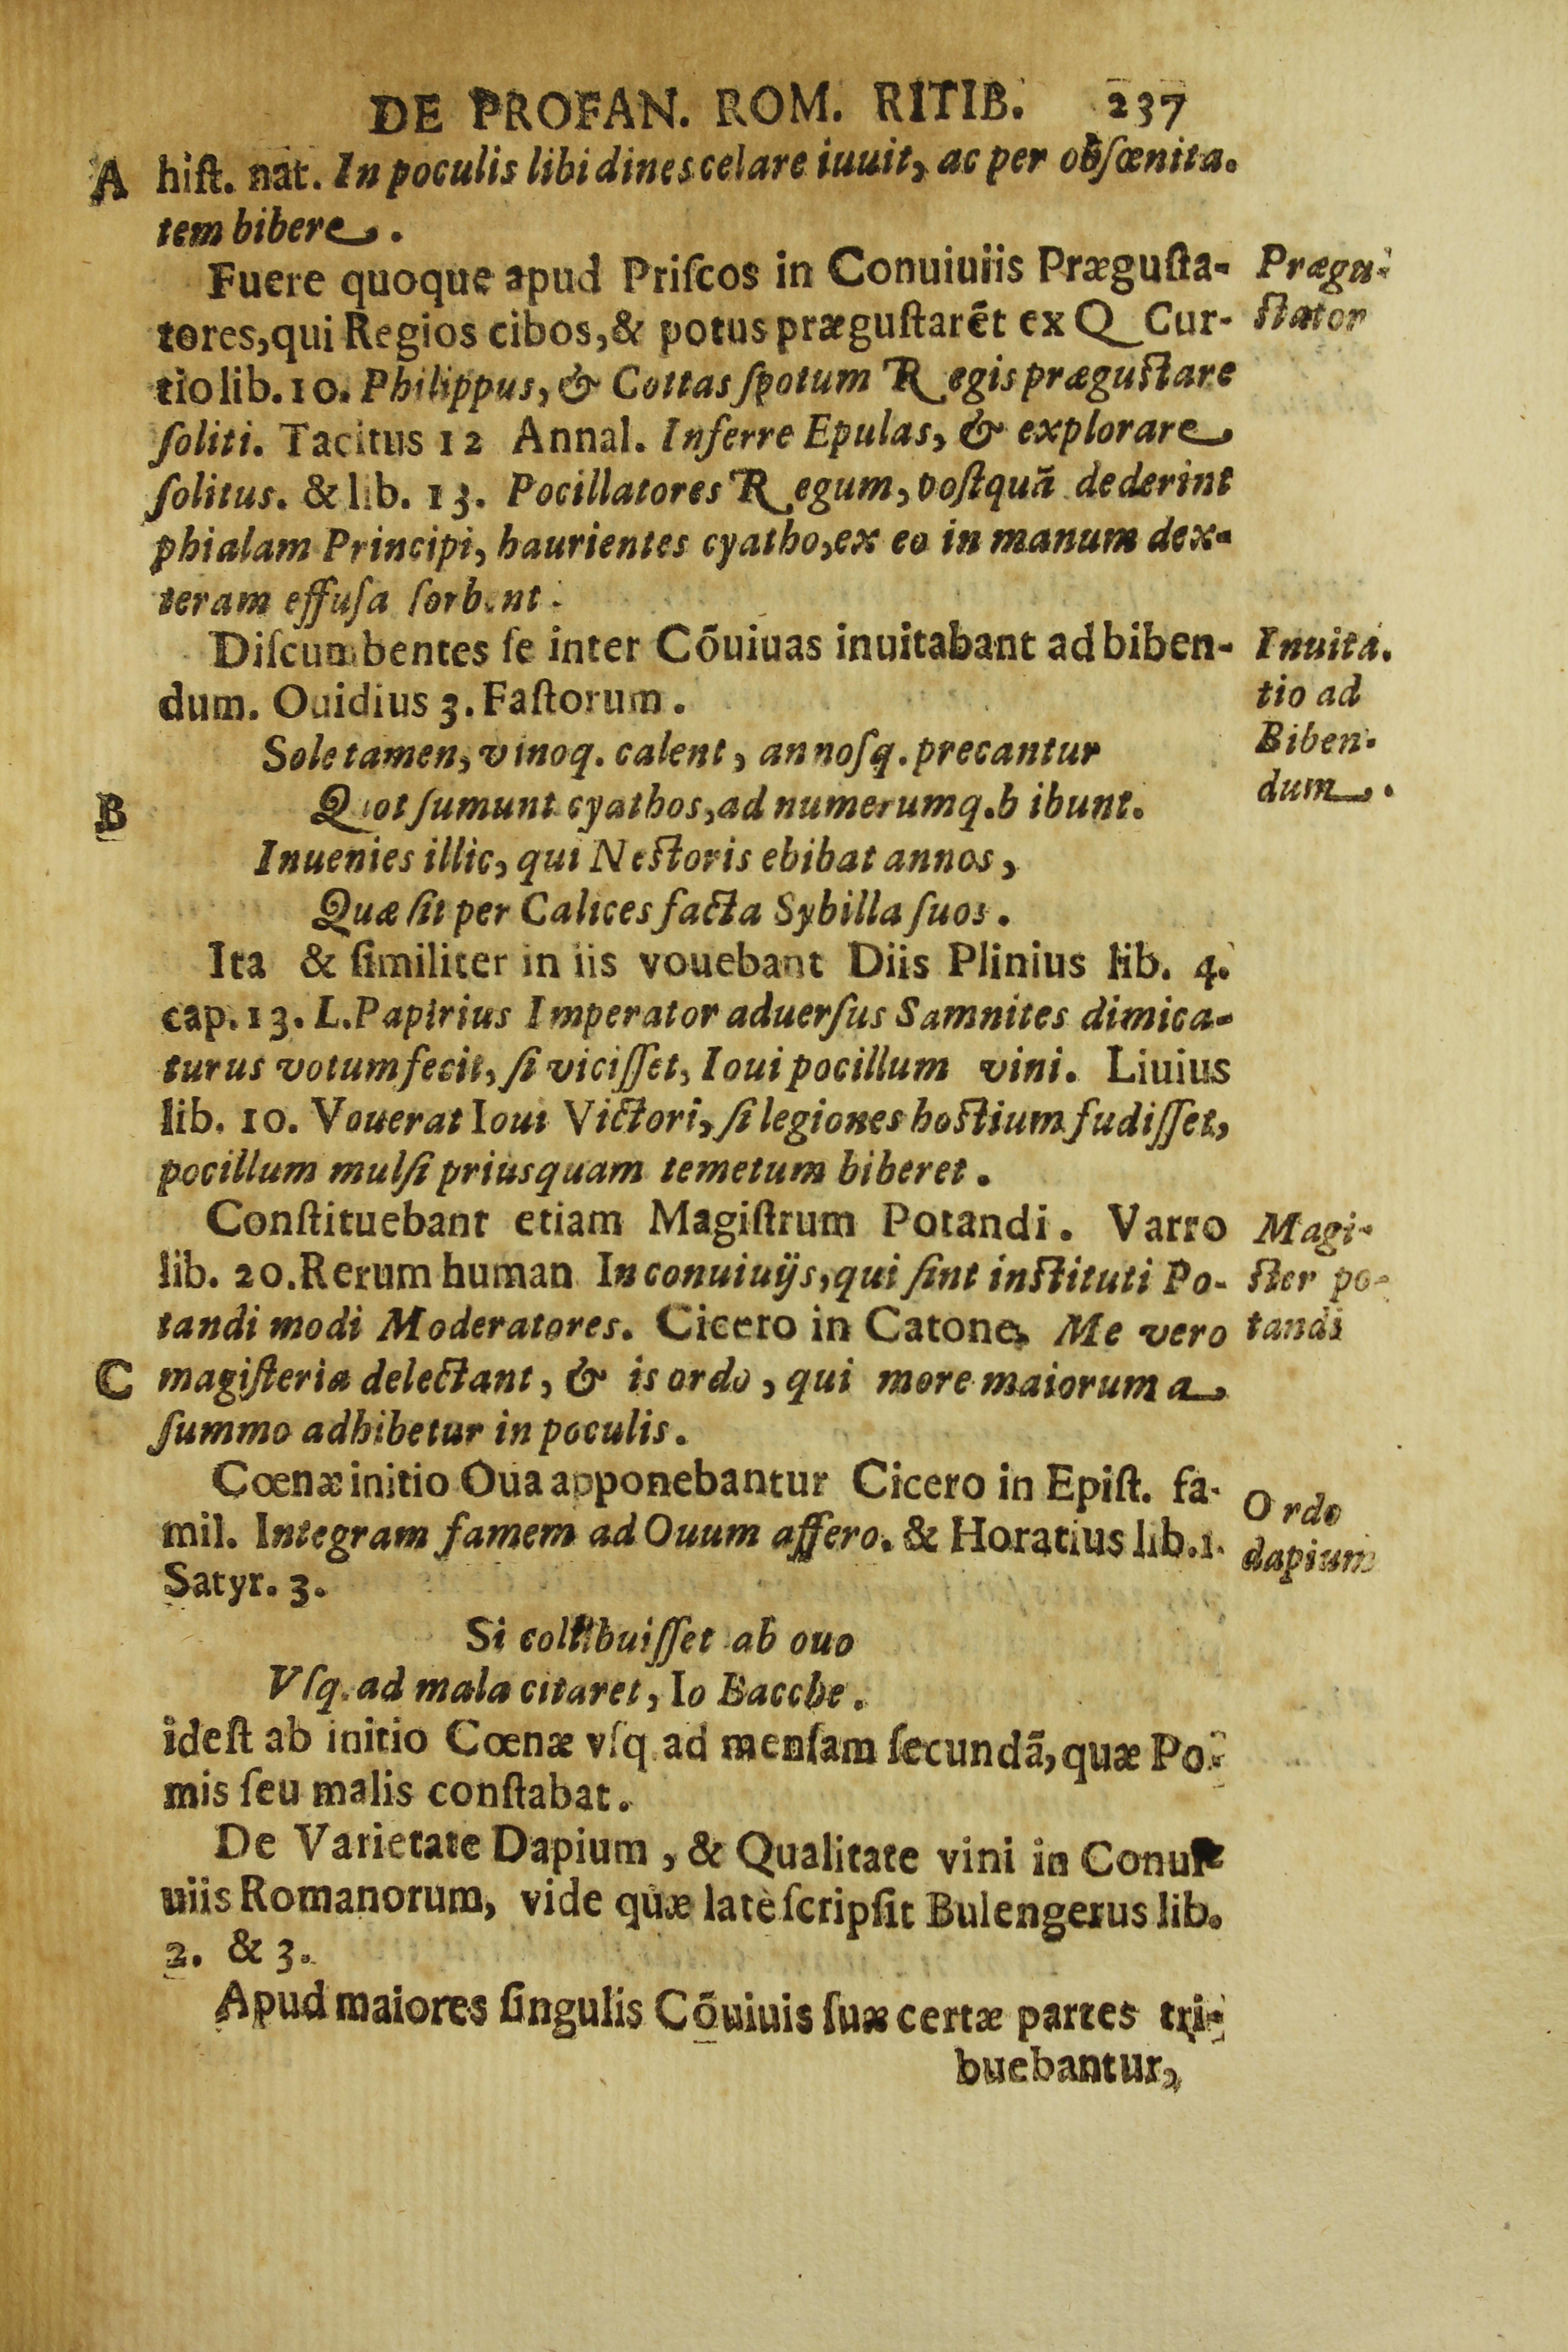 DE PROFAN. ROM. RITIB. 237
A hiſt. nat. In poculis libidines celare iuuit, ac per obſœnita-
tem bibere.
Fuere quoque apud Priſcos in Conuiuiis Præguſta- Prægu-
tores, qui Regios cibos, & potus præguſtarēt ex Q Cur- ſtator
tio lib. 10. Philippus, & Cottas ſpotum Regis præguſtare
ſoliti. Tacitus 12 Annal. Inferre Epulas, & explorare
ſolitus. & lib. 13. Pocillatores Regum, poſtquã dederint
phialam Principi, haurientes cyatho, ex eo in manum dex-
teram effuſa ſorbent.
Diſcumbentes ſe inter Cōuiuas inuitabant ad biben- Inuita.
dum. Ouidius 3. Faſtorum. tio ad
Sole tamen, vinoq. calent, annoſq. precantur Biben-
B Quot ſumunt cyathos, ad numerumq. bibunt. dum.
Inuenies illic, qui Neſtoris ebibat annos,
Quæ ſit per Calices facta Sybilla ſuos.
Ita & ſimiliter in iis vouebant Diis Plinius lib. 4.
cap. 13. L. Papirius Imperator aduerſus Samnites dimica-
turus votum fecit, ſi viciſſet, Ioui pocillum vini. Liuius
lib. 10. Vouerat Ioui Victori, ſi legiones hoſtium fudiſſet,
pocillum mulſi priusquam temetum biberet.
Conſtituebant etiam Magiſtrum Potandi. Varro Magi-
lib. 20. Rerum human In conuiuijs, qui ſint inſtituti Po- ſter po-
tandi modi Moderatores. Cicero in Catone. Me vero tandi
C magiſteria delectant, & is ordo, qui more maiorum a
ſummo adhibetur in poculis.
Cœnæ initio Oua apponebantur Cicero in Epiſt. fa- Ordo
mil. Integram famem ad Ouum affero. & Horatius lib. 1. dapium
Satyr. 3.
Si collibuiſſet ab ouo
Vſq. ad mala citaret, Io Bacche.
ideſt ab initio Cœnæ vſq. ad menſam ſecundã, quæ Po-
mis ſeu malis conſtabat.
De Varietate Dapium, & Qualitate vini in Conui-
uiis Romanorum, vide quæ latè ſcripſit Bulengerus lib.
2. & 3.
Apud maiores ſingulis Cōuiuis ſuæ certæ partes tri-
buebantur,